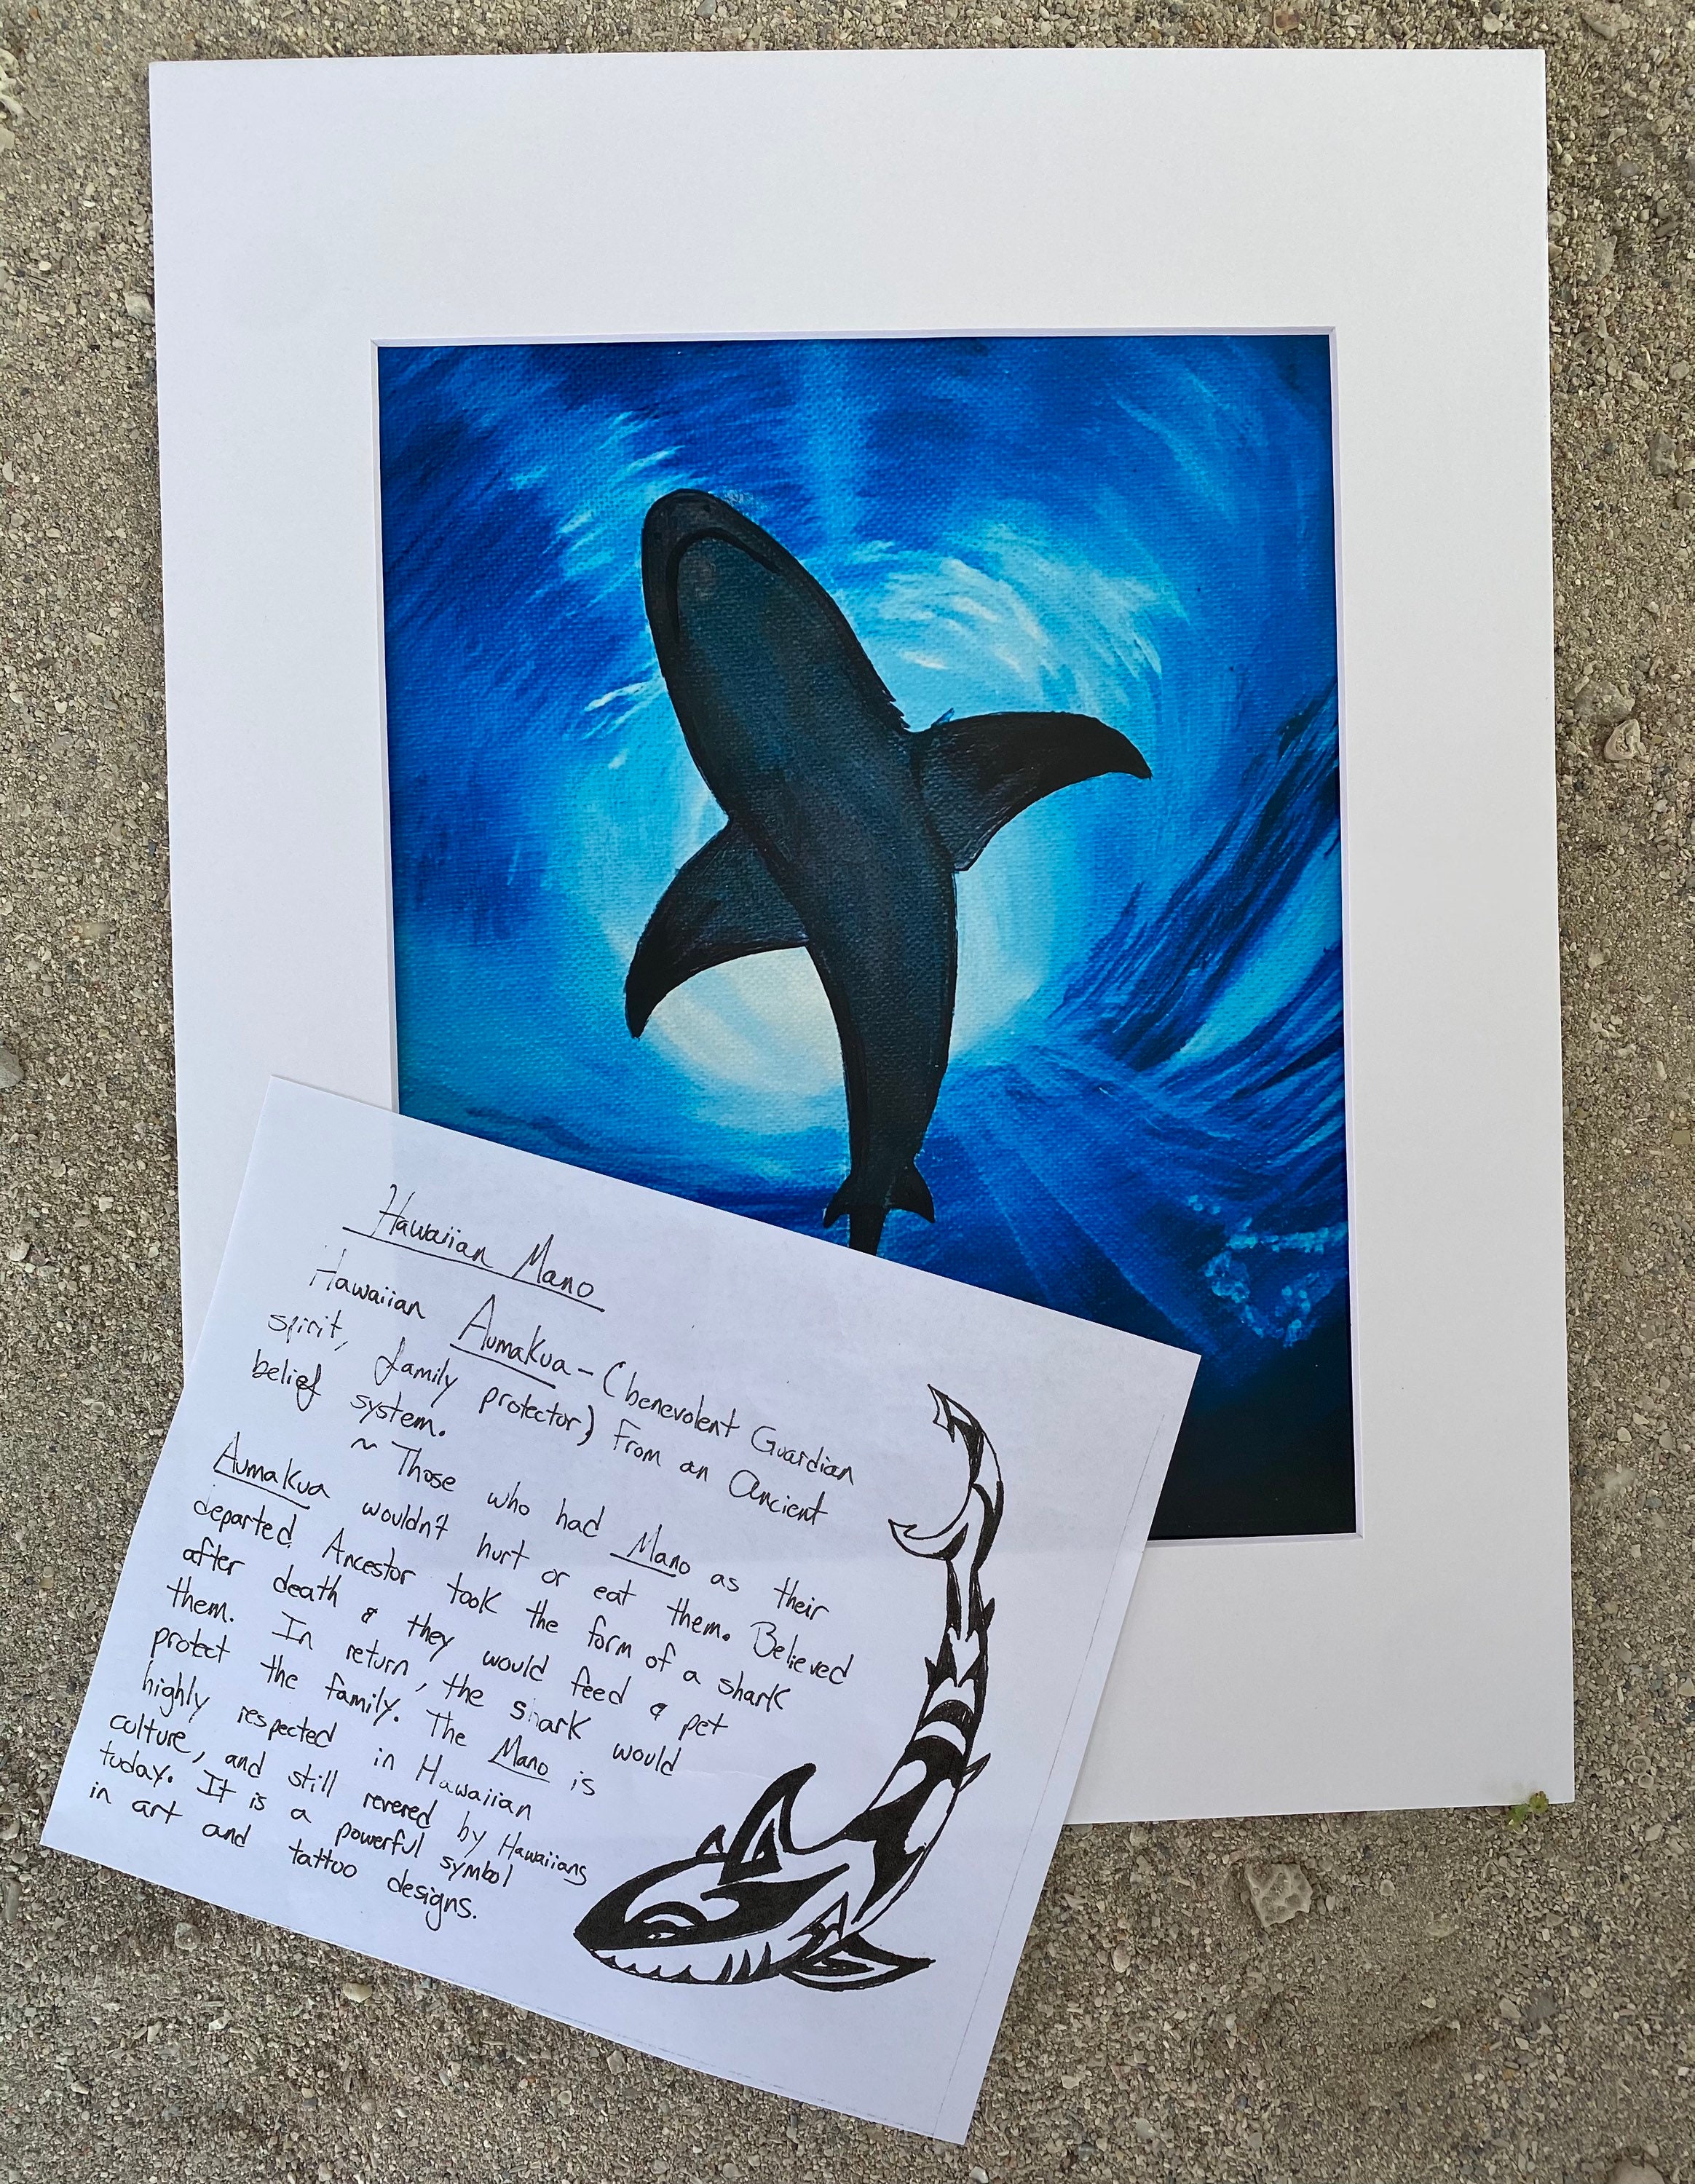 Hawaiian Mano
Hawaiian Aumakua - (benevolent Guardian
spirit, family protector) From an Ancient
belief system.
~ Those who had Mano as their
Aumakua wouldn't hurt or eat them. Believed
departed Ancestor took the form of a shark
after death & they would feed & pet
them. In return, the shark would
protect the family. The Mano is
highly respected in Hawaiian
culture, and still revered by Hawaiians
today. It is a powerful symbol
in art and tattoo designs.